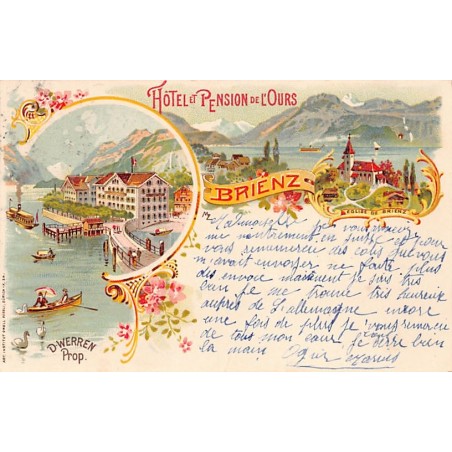 HÔTEL ET PENSION DE L'OURS
BRIENZ
EGLISE DE BRIENZ
D. WERREN
Prop.
Mademoiselle je vous
me maintenant en suisse et pour
vous remercier des colis que vous
m'avait envoyer ne faite plus
des envoie maintenent je suis très
bien je me trouve très heureux
auprès de l'allemagne encore
une fois de plus je vous remercie
de tous mon cœur je serre bien
la main